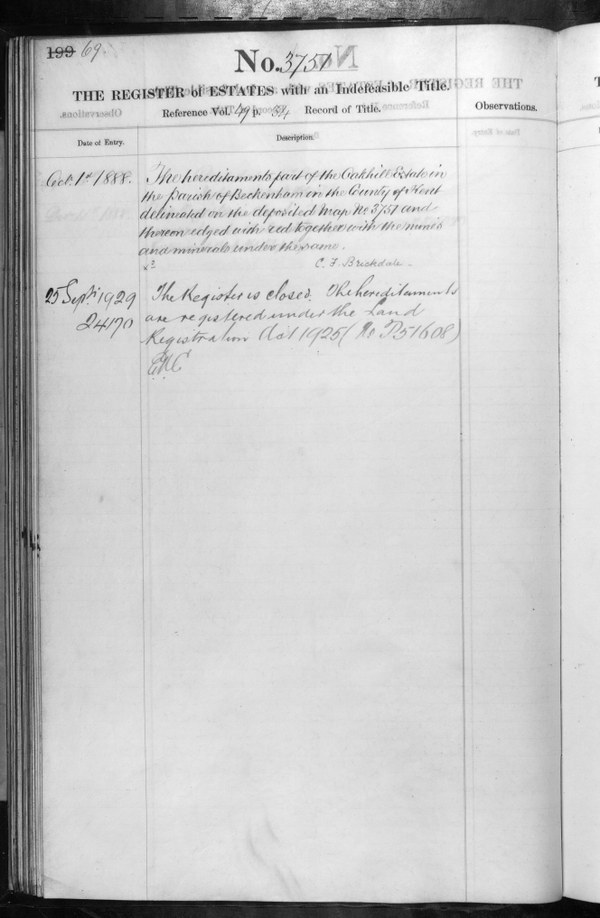 199 69.
No. 3751
THE REGISTER of ESTATES with an Indefeasible Title.
Reference Vol. 49 p. 34 Record of Title.
Observations.
Date of Entry.
Description.
Oct. 1st 1888.
The hereditaments part of the Oakhill Estate in
the Parish of Beckenham in the County of Kent
delineated on the deposited Map No 3751 and
thereon edged with red together with the mines
and minerals under the same.
C. F. Brickdale.
25 Sept. 1929
24170
The Register is closed. The hereditaments
are registered under the Land
Registration Act 1925 (No P51608)